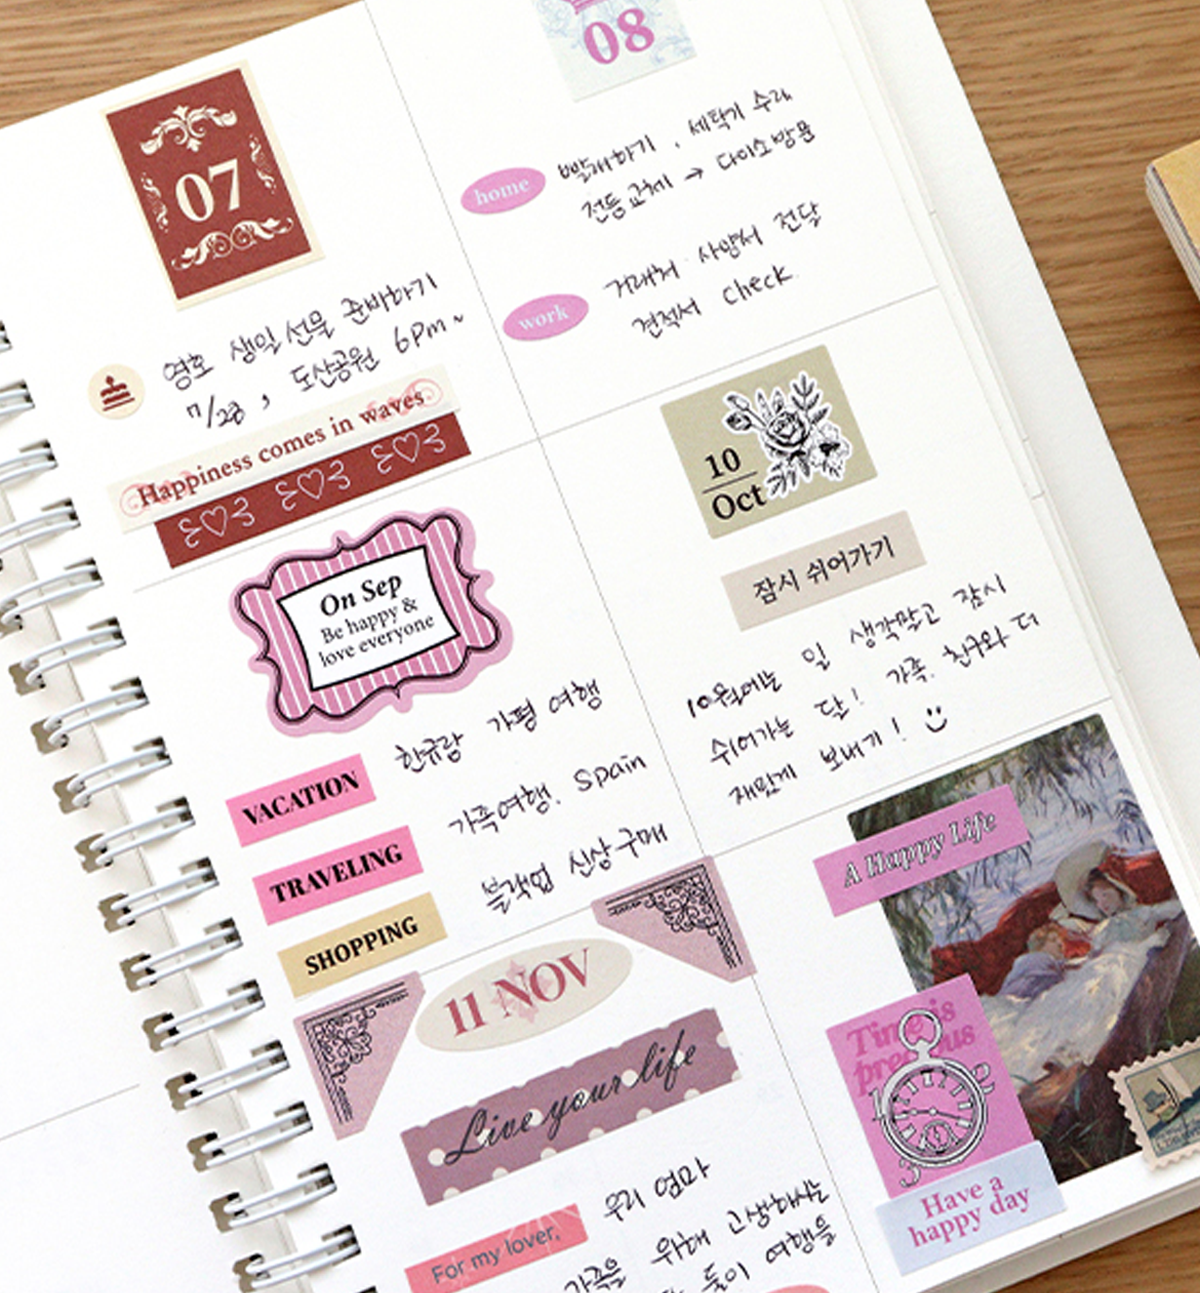 07
영호 생일선물 준비하기
7/28, 도산공원 6pm~
Happiness comes in waves
08
home
빨래하기, 세탁기 수리
전등교체 → 다이소방문
work
거래처 사양서 전달
견적서 check
On Sep
Be happy &
love everyone
VACATION
한규랑 가평 여행
TRAVELING
가족여행. Spain
SHOPPING
블랙업 신상구매
10
Oct
잠시 쉬어가기
10월에는 일 생각말고 잠시
쉬어가는 달! 가족, 친구와 더
재밌게 보내기!
11 NOV
Live your life
For my lover,
우리 엄마
가족을 위해 고생하시는
둘이 여행을
A Happy Life
Time is
precious
12
3
Have a
happy day